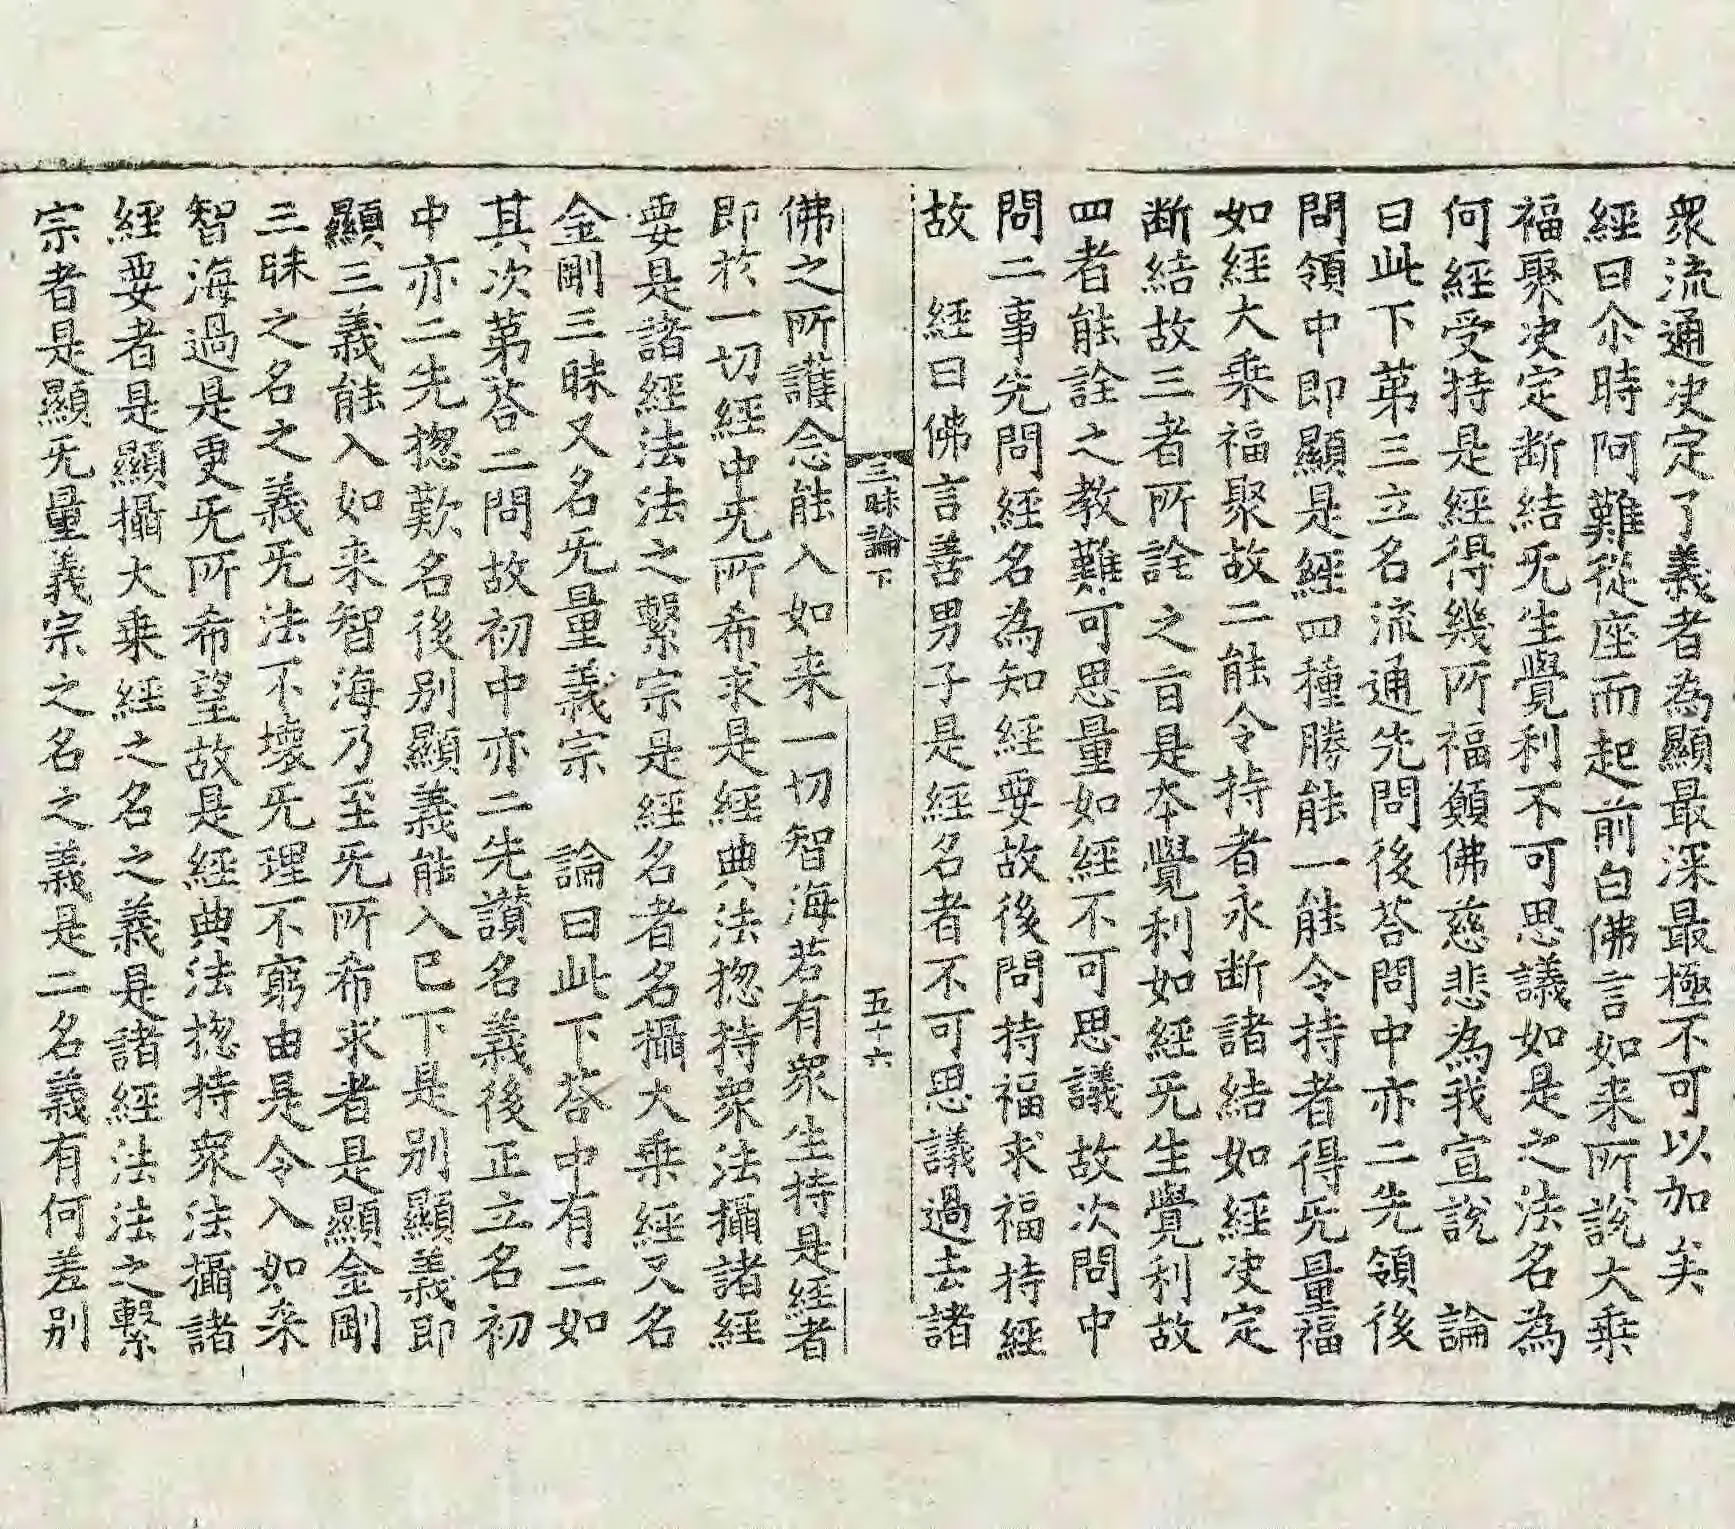 衆流通决定了義者為顯最深最極不可以加矣
經曰尒時阿難從座而起前白佛言如来所說大乗
福聚决定断結旡生覺利不可思議如是之法名為
何經受持是經得幾所福願佛慈悲為我宣說　論
曰此下苐三立名流通先問後荅問中亦二先領後
問領中即顯是經四種勝能一能令持者得旡量福
如經大乗福聚故二能令持者永断諸結如經决定
断結故三者所詮之旨是本覺利如經旡生覺利故
四者能詮之教難可思量如經不可思議故次問中
問二事先問經名為知經要故後問持福求福持經
故　經曰佛言善男子是經名者不可思議過去諸
三昧論下　五十六
佛之所護念能入如来一切智海若有衆生持是經者
即於一切經中旡所希求是經典法揔持衆法攝諸經
要是諸經法法之繫宗是經名者名攝大乗經又名
金剛三昧又名旡量義宗　論曰此下荅中有二如
其次第荅二問故初中亦二先讃名義後正立名初
中亦二先揔歎名後别顯義能入已下是别顯義即
顯三義能入如来智海乃至旡所希求者是顯金剛
三昧之名之義旡法不壊旡理不窮由是令入如来
智海過是更旡所希望故是經典法揔持衆法攝諸
經要者是顯攝大乗經之名之義是諸經法法之繫
宗者是顯旡量義宗之名之義是二名義有何差别